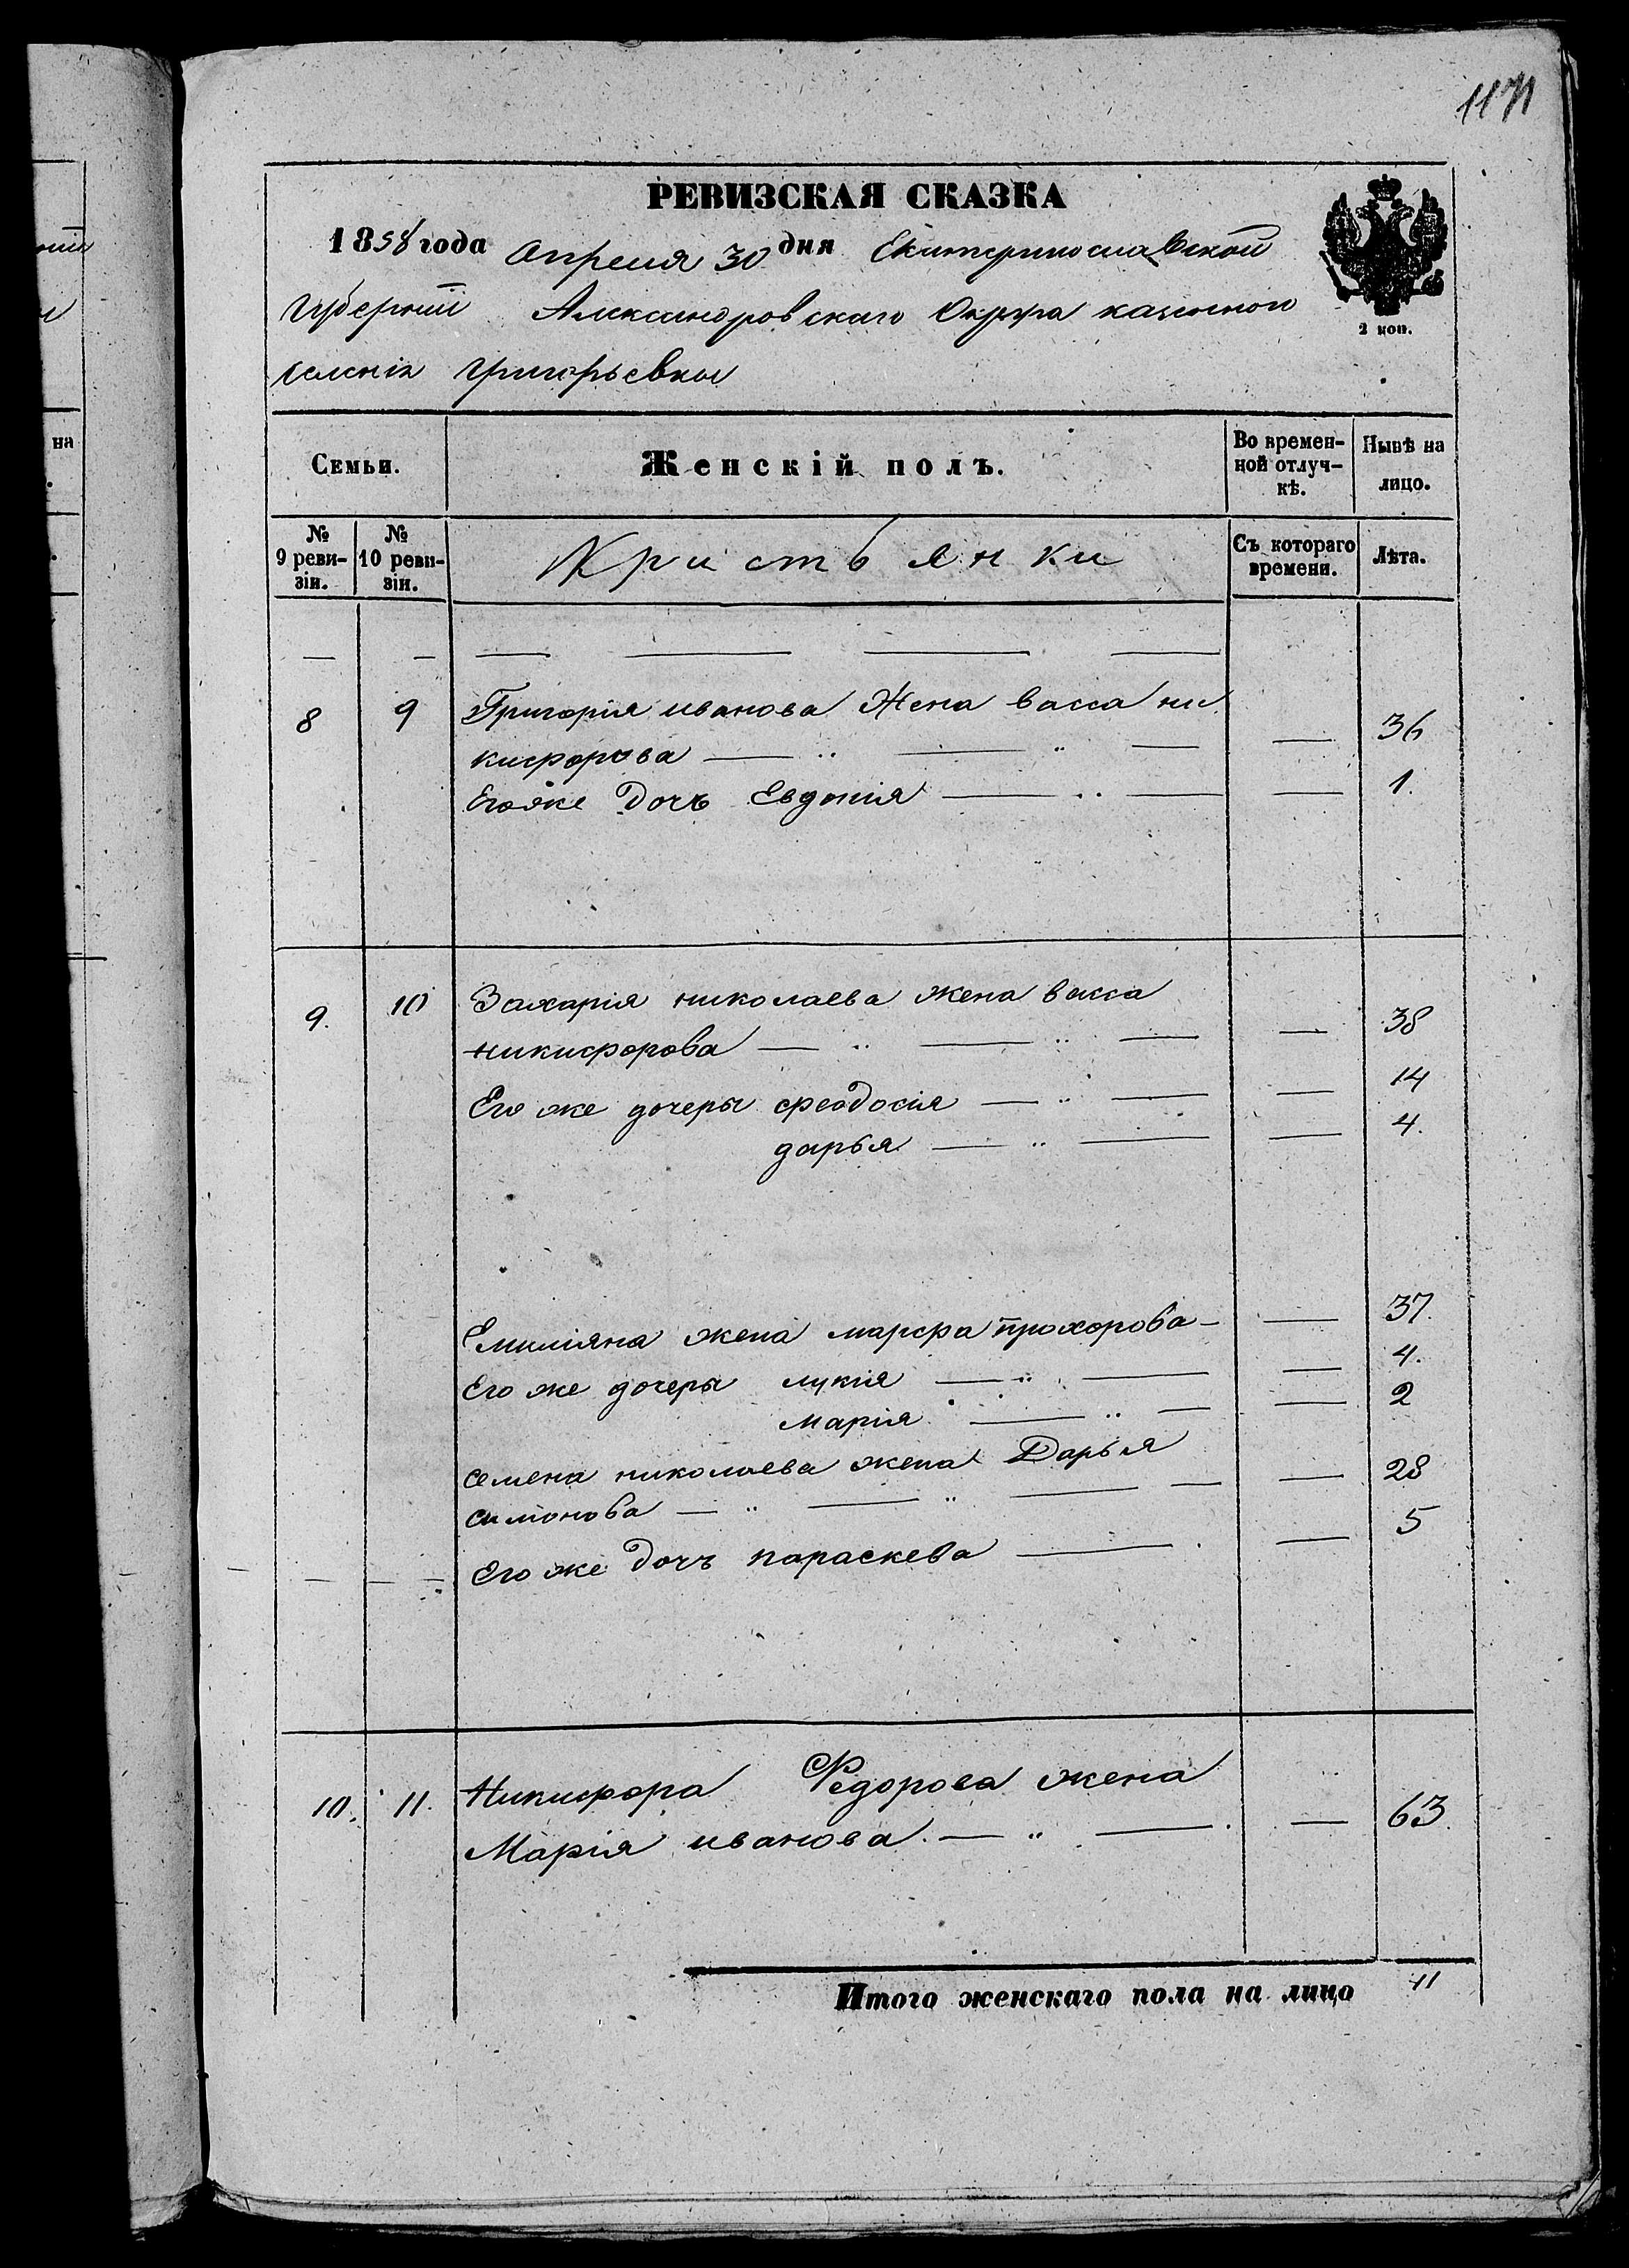 РЕВИЗСКАЯ СКАЗКА
1858 года Апреля 30 дня Екатеринославской
Губернии Александровскаго Округа казенного
селенія Григорьевки
2 коп.
Семьи. Женскій полъ. Во времен-ной отлуч-кѣ. Нынѣ на лицо.
№ 9 реви-зіи. № 10 реви-зіи. Кристьянки Съ котораго времени. Лѣта.
8 9 Григорія иванова Жена васса ни
кифорова 36
Его же Дочь Евдокія 1.
9. 10 Захарія николаева жена васса
никифорова 38
Его же дочеры феодосія 14
дарья 4.
Емиліяна жена марфа прохорова 37.
Его же дочеры лукія 4.
марія 2
семена николаева жена Дарья
симонова 28
Его же Дочъ параскева 5
10. 11. Никифора Федорова жена
Марія иванова. 63.
Итого женскаго пола на лицо 11
на